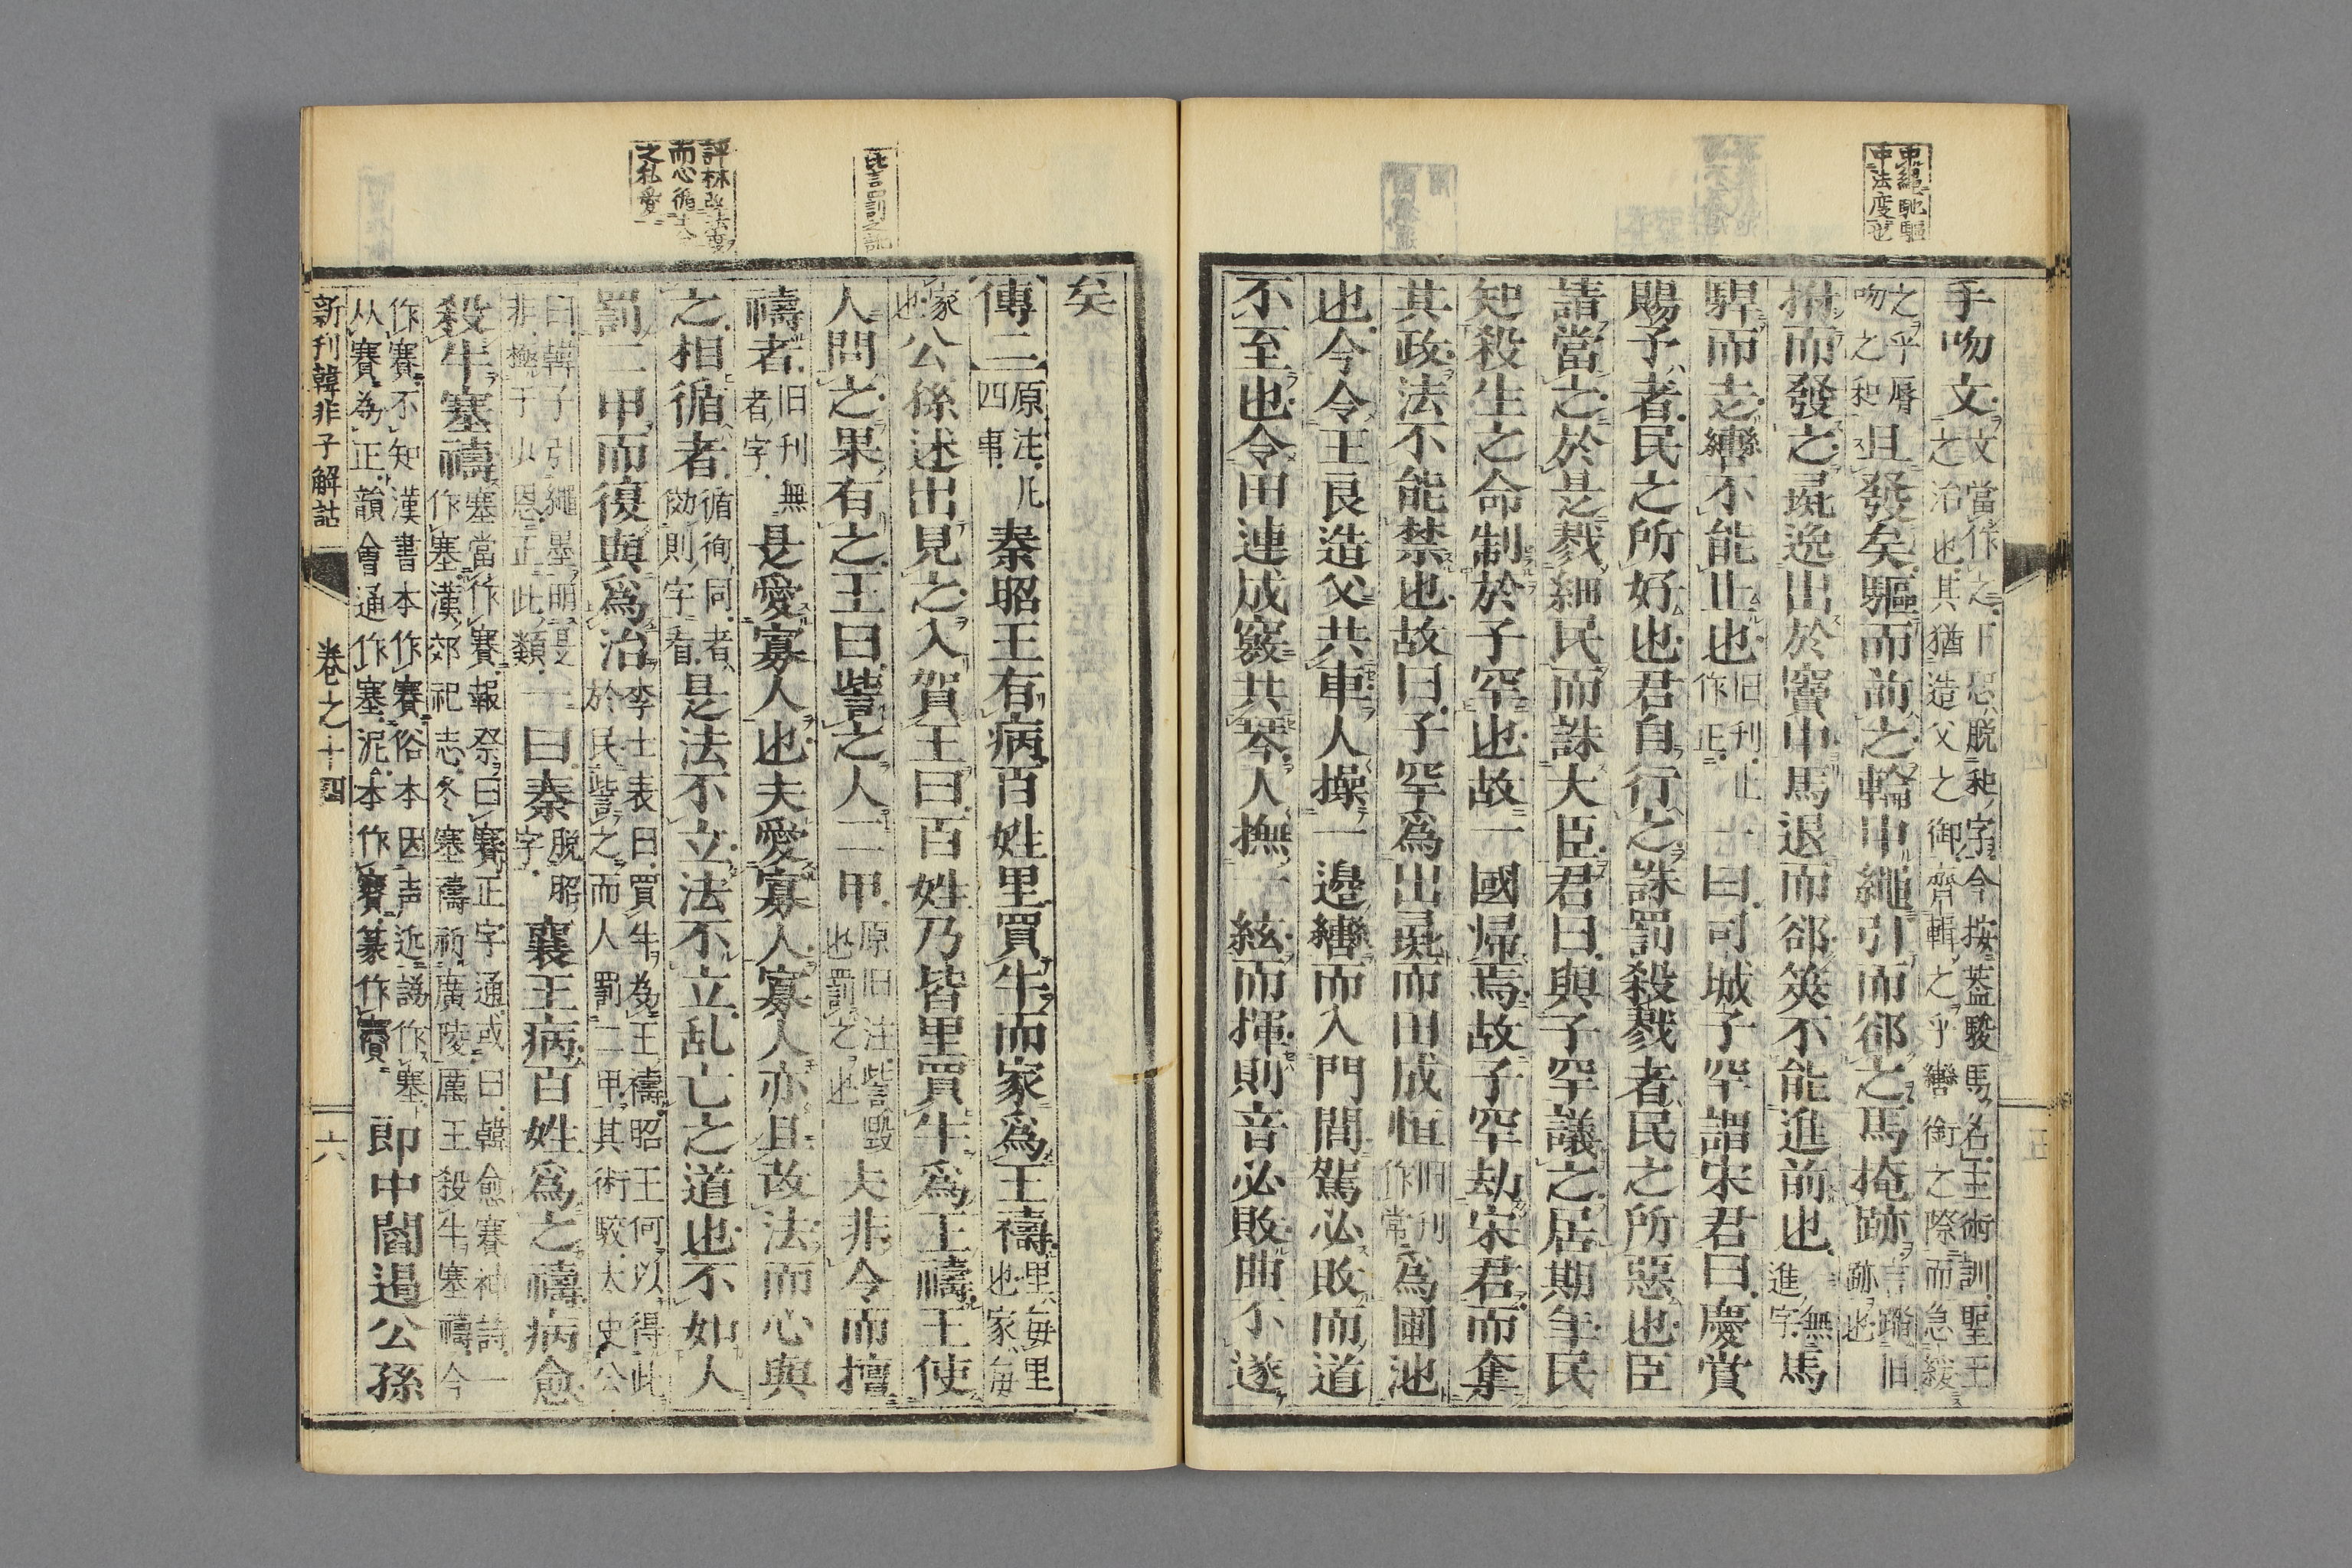 中繩馳驅
中法度也
手吻文文當作之下恐脫和字今按蓋駿馬名主術訓聖王
之治也其猶造父之御齊輯之乎轡銜之際而急緩
之乎脣吻之和且發矣驅而前之輪中繩引而郤之馬掩跡言踏旧跡也
拊而發之彘逸出於竇中馬退而郤筴不能進前也無進字馬
駻而走轡不能止也旧刊止作正一曰司城子罕謂宋君曰慶賞
賜予者民之所好也君自行之誅罰殺戮者民之所惡也臣
請當之於是戮細民而誅大臣君曰與子罕議之居期年民
知殺生之命制於子罕也故一國歸焉故子罕劫宋君而奪
其政法不能禁也故曰子罕爲出彘而田成恒旧刊作常爲圃池
也今令王良造父共車人操一邊轡而入門閭駕必敗而道
不至也令田連成竅共琴人撫一絃而揮則音必敗曲不遂
比言罰之訛
評林改法度
而心循
之私愛
矣
傳二原注凡四事秦昭王有病百姓里買牛而家爲王禱里每里也家每
家也公孫述出見之入賀王曰百姓乃皆里買牛爲王禱王使
人問之果有之王曰訾之人二甲原旧注訾毀也罰之也夫非令而擅
禱者旧刊無者字是愛寡人也夫愛寡人寡人亦且改法而心與
之相循者循徇同者効則字看是法不立法不立乱亡之道也不如人
罰二甲而復與爲治李士表曰買牛爲王禱昭王何以得此於民訾之而人罰二甲其術較太史公
曰韓子引繩墨明是非極于少恩正此類一曰秦脫昭字襄王病百姓爲之禱病愈
殺牛塞禱塞當作賽報祭曰賽正字通或曰韓愈賽神詩一作塞漢郊祀志冬塞禱祠廣陵厲王殺牛塞禱今
作賽不知漢書本作賽俗本因声近譌作塞从賽爲正韻會通作塞泥本作賽篆作賽郎中閻遏公孫
新刊韓非子解詁　卷之十四　六